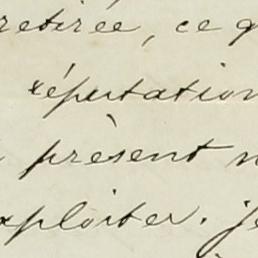 retirée, ce q
réputation
présent n
xploiter. je